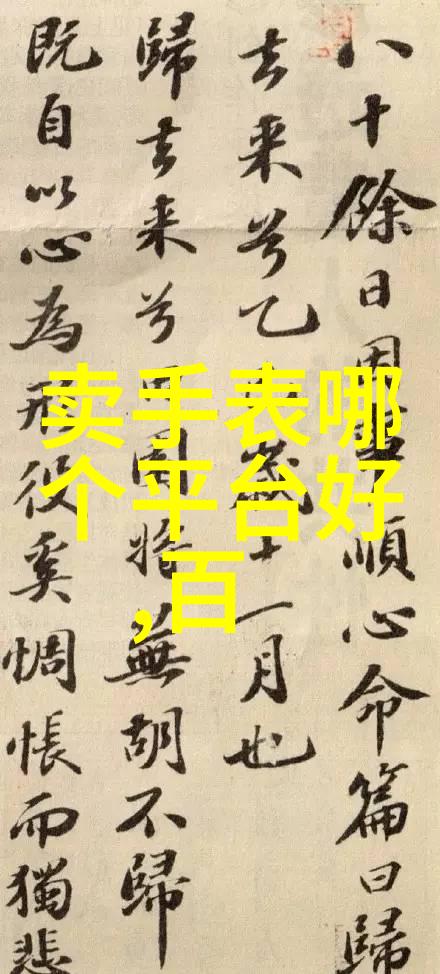 八十餘日因事順心命篇曰歸
去来兮乙巳歲十一月也
歸去来兮田園将蕪胡不歸
既自以心為形役奚惆悵而獨悲
卖手表哪
个平台好
,百